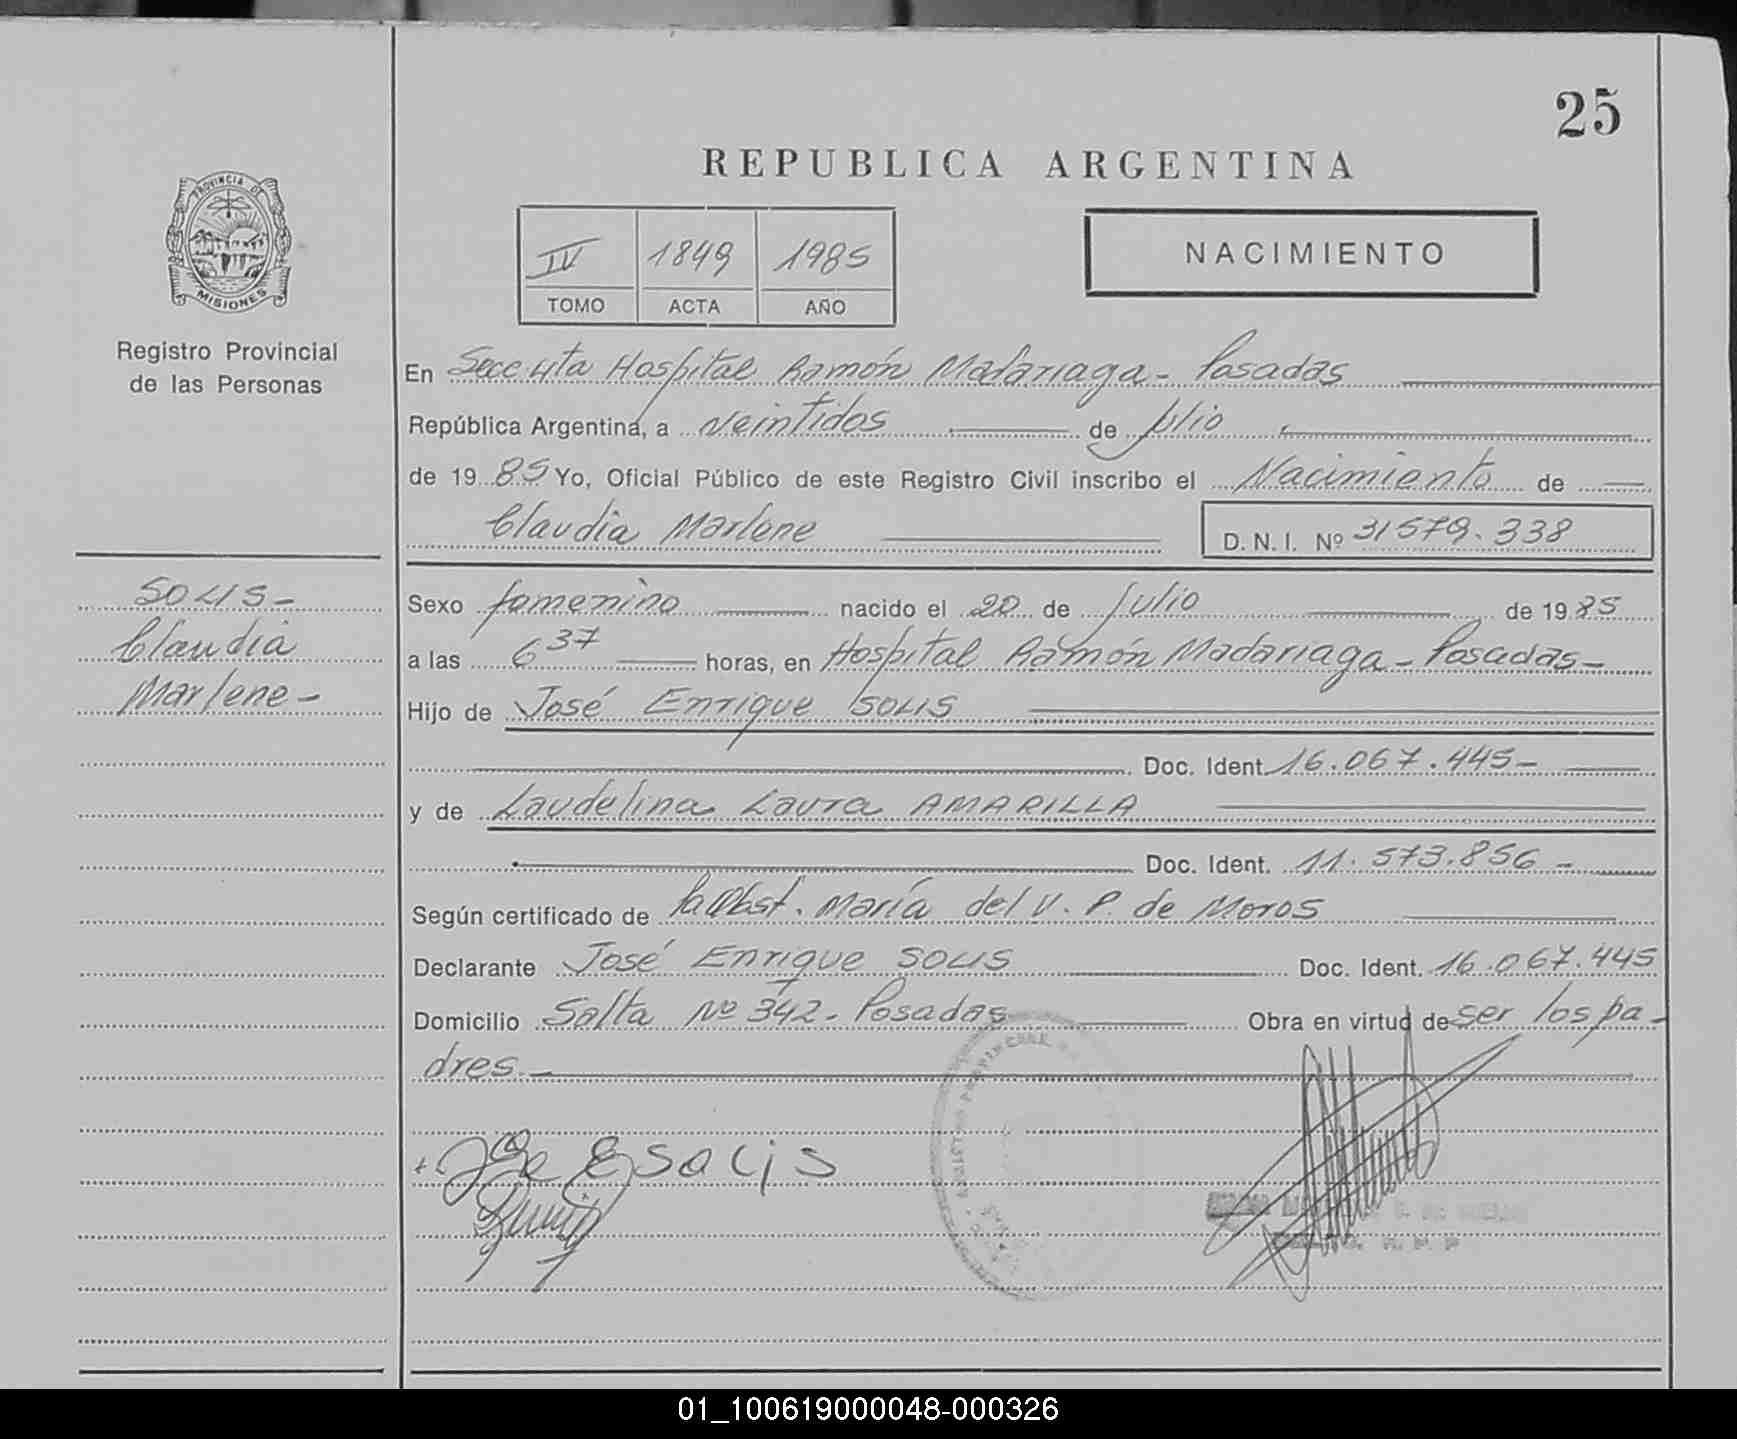 25
REPUBLICA ARGENTINA
IV 1849 1985
TOMO ACTA AÑO
NACIMIENTO
PROVINCIA DE
MISIONES
Registro Provincial
de las Personas
En Secc 4ta Hospital Ramón Madariaga - Posadas
República Argentina, a Veintidos de Julio
de 19 85 Yo, Oficial Público de este Registro Civil inscribo el Nacimiento de
Claudia Marlene
D. N. I. Nº 31579.338
SOLIS -
Claudia
Marlene -
Sexo femenino nacido el 20 de Julio de 19 85
a las 6 37 horas, en Hospital Ramón Madariaga - Posadas -
Hijo de José Enrique SOLIS
Doc. Ident. 16.067.445 -
y de Laudelina Laura AMARILLA
Doc. Ident. 11.573.856 -
Según certificado de la Obst. María del V. P. de Moros
Declarante José Enrique SOLIS Doc. Ident. 16.067.445
Domicilio Salta Nº 342 - Posadas Obra en virtud de ser los pa -
dres. -
E Solis
01_100619000048-000326